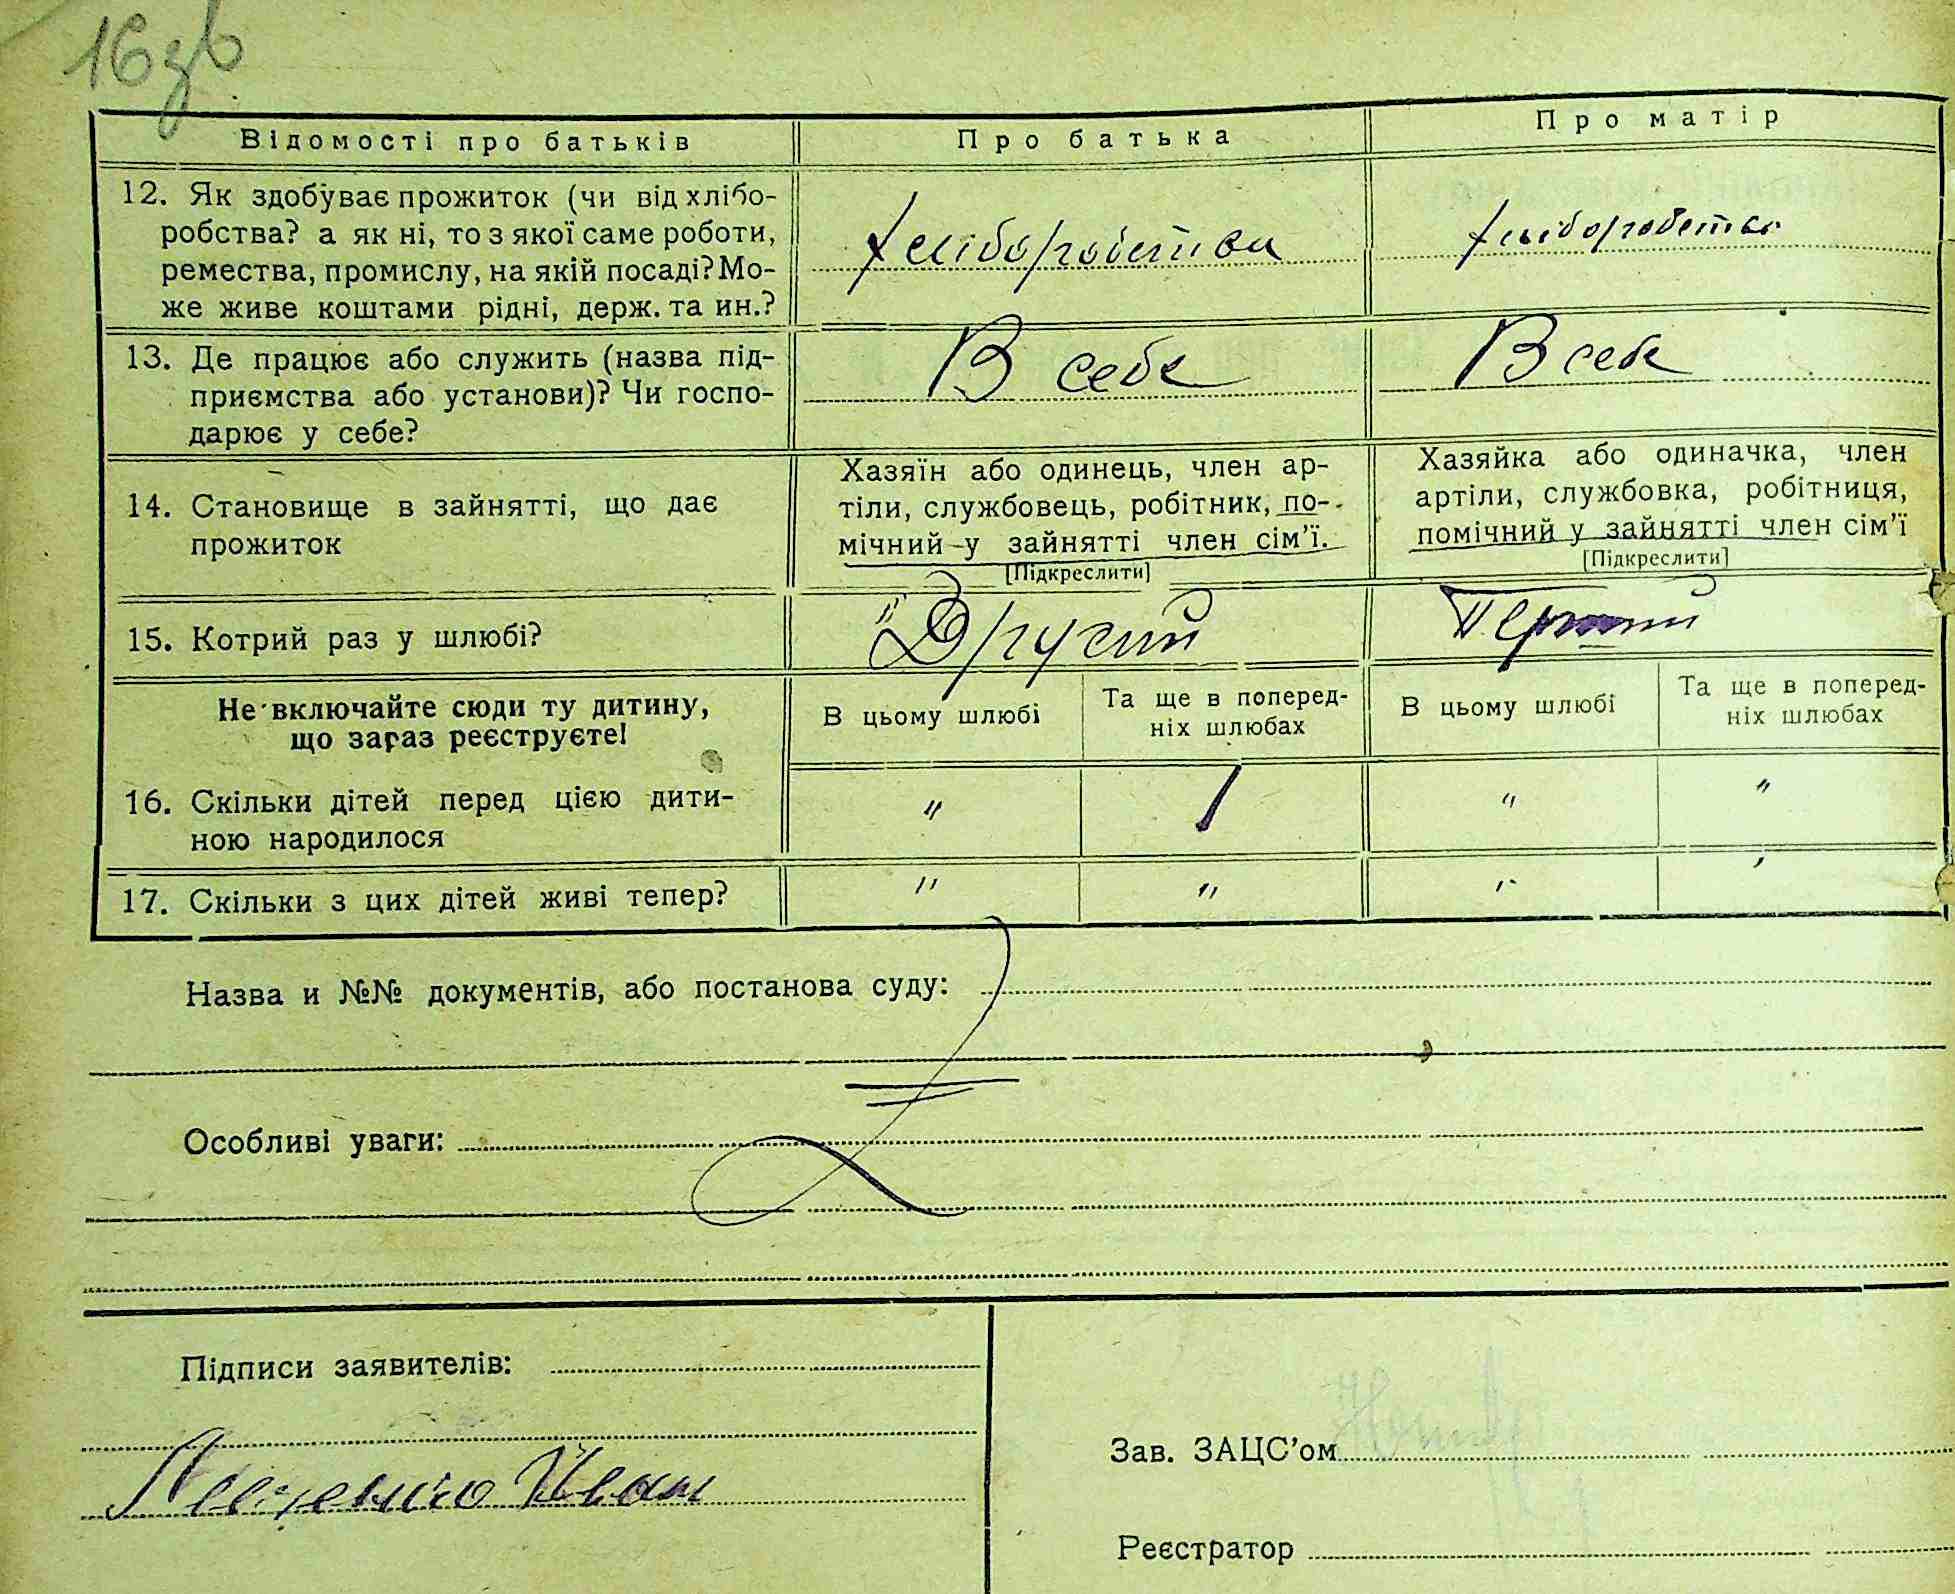 16зв
Відомості про батьків Про батька Про матір
12. Як здобуває прожиток (чи від хлібо-
робства? а як ні, то з якої саме роботи,
ремества, промислу, на якій посаді? Мо-
же живе коштами рідні, держ. та ин.?
хліборобство хліборобство
13. Де працює або служить (назва під-
приємства або установи)? Чи госпо-
дарює у себе?
В себе В себе
14. Становище в зайнятті, що дає
прожиток
Хазяїн або одинець, член ар-
тіли, службовець, робітник, по-
мічний у зайнятті член сім'ї.
[Підкреслити]
Хазяйка або одиначка, член
артіли, службовка, робітниця,
помічний у зайнятті член сім'ї
[Підкреслити]
15. Котрий раз у шлюбі? Другий Перший
Не включайте сюди ту дитину,
що зараз реєструєте!
В цьому шлюбі
Та ще в поперед-
ніх шлюбах
В цьому шлюбі
Та ще в поперед-
ніх шлюбах
16. Скільки дітей перед цією дити-
ною народилося
" 1 " "
17. Скільки з цих дітей живі тепер?
" " " '
Назва и №№ документів, або постанова суду:
Особливі уваги:
Підписи заявителів:
Іван
Зав. ЗАЦС'ом
Реєстратор